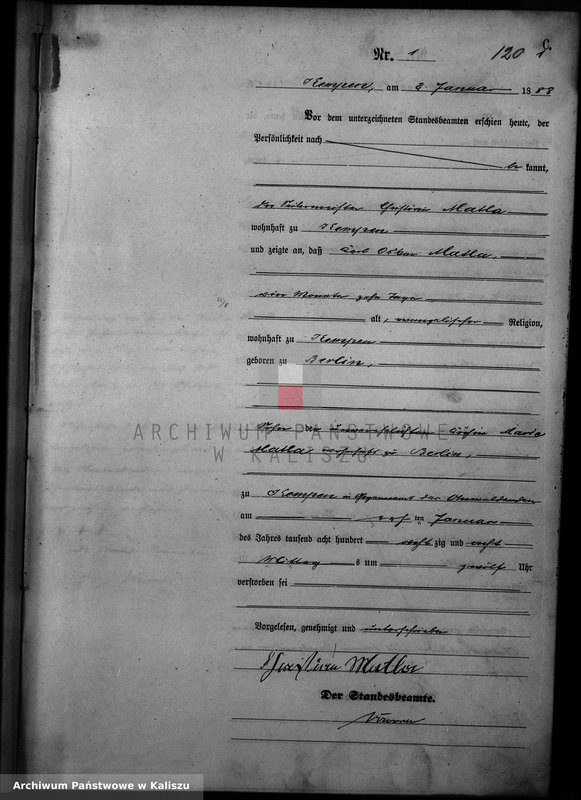 C.
Nr. 1 120 1
Kempen, am 2 Januar 1888
Vor dem unterzeichneten Standesbeamten erschien heute, der
Persönlichkeit nach
be kannt,
der Christian Matla
wohnhaft zu Kempen
und zeigte an, daß Carl Oskar Matla,
vier Monate zehn Tage
alt, evangelischer Religion,
wohnhaft zu Kempen
geboren zu Berlin,
Sohn der Köchin Marie
Matla, wohnhaft zu Berlin,
zu Kempen in Gegenwart des
am ten Januar
des Jahres tausend acht hundert acht zig und acht
Mittag s um zwölf Uhr
verstorben sei
Vorgelesen, genehmigt und unterschrieben
Christian Matla
Der Standesbeamte.
ARCHIWUM PAŃSTWOWE
W KALISZU
Archiwum Państwowe w Kaliszu